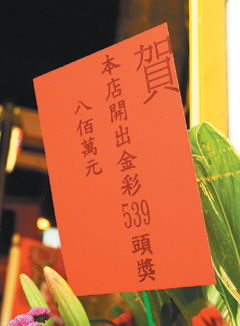 賀
本店開出金彩539頭獎
八佰萬元